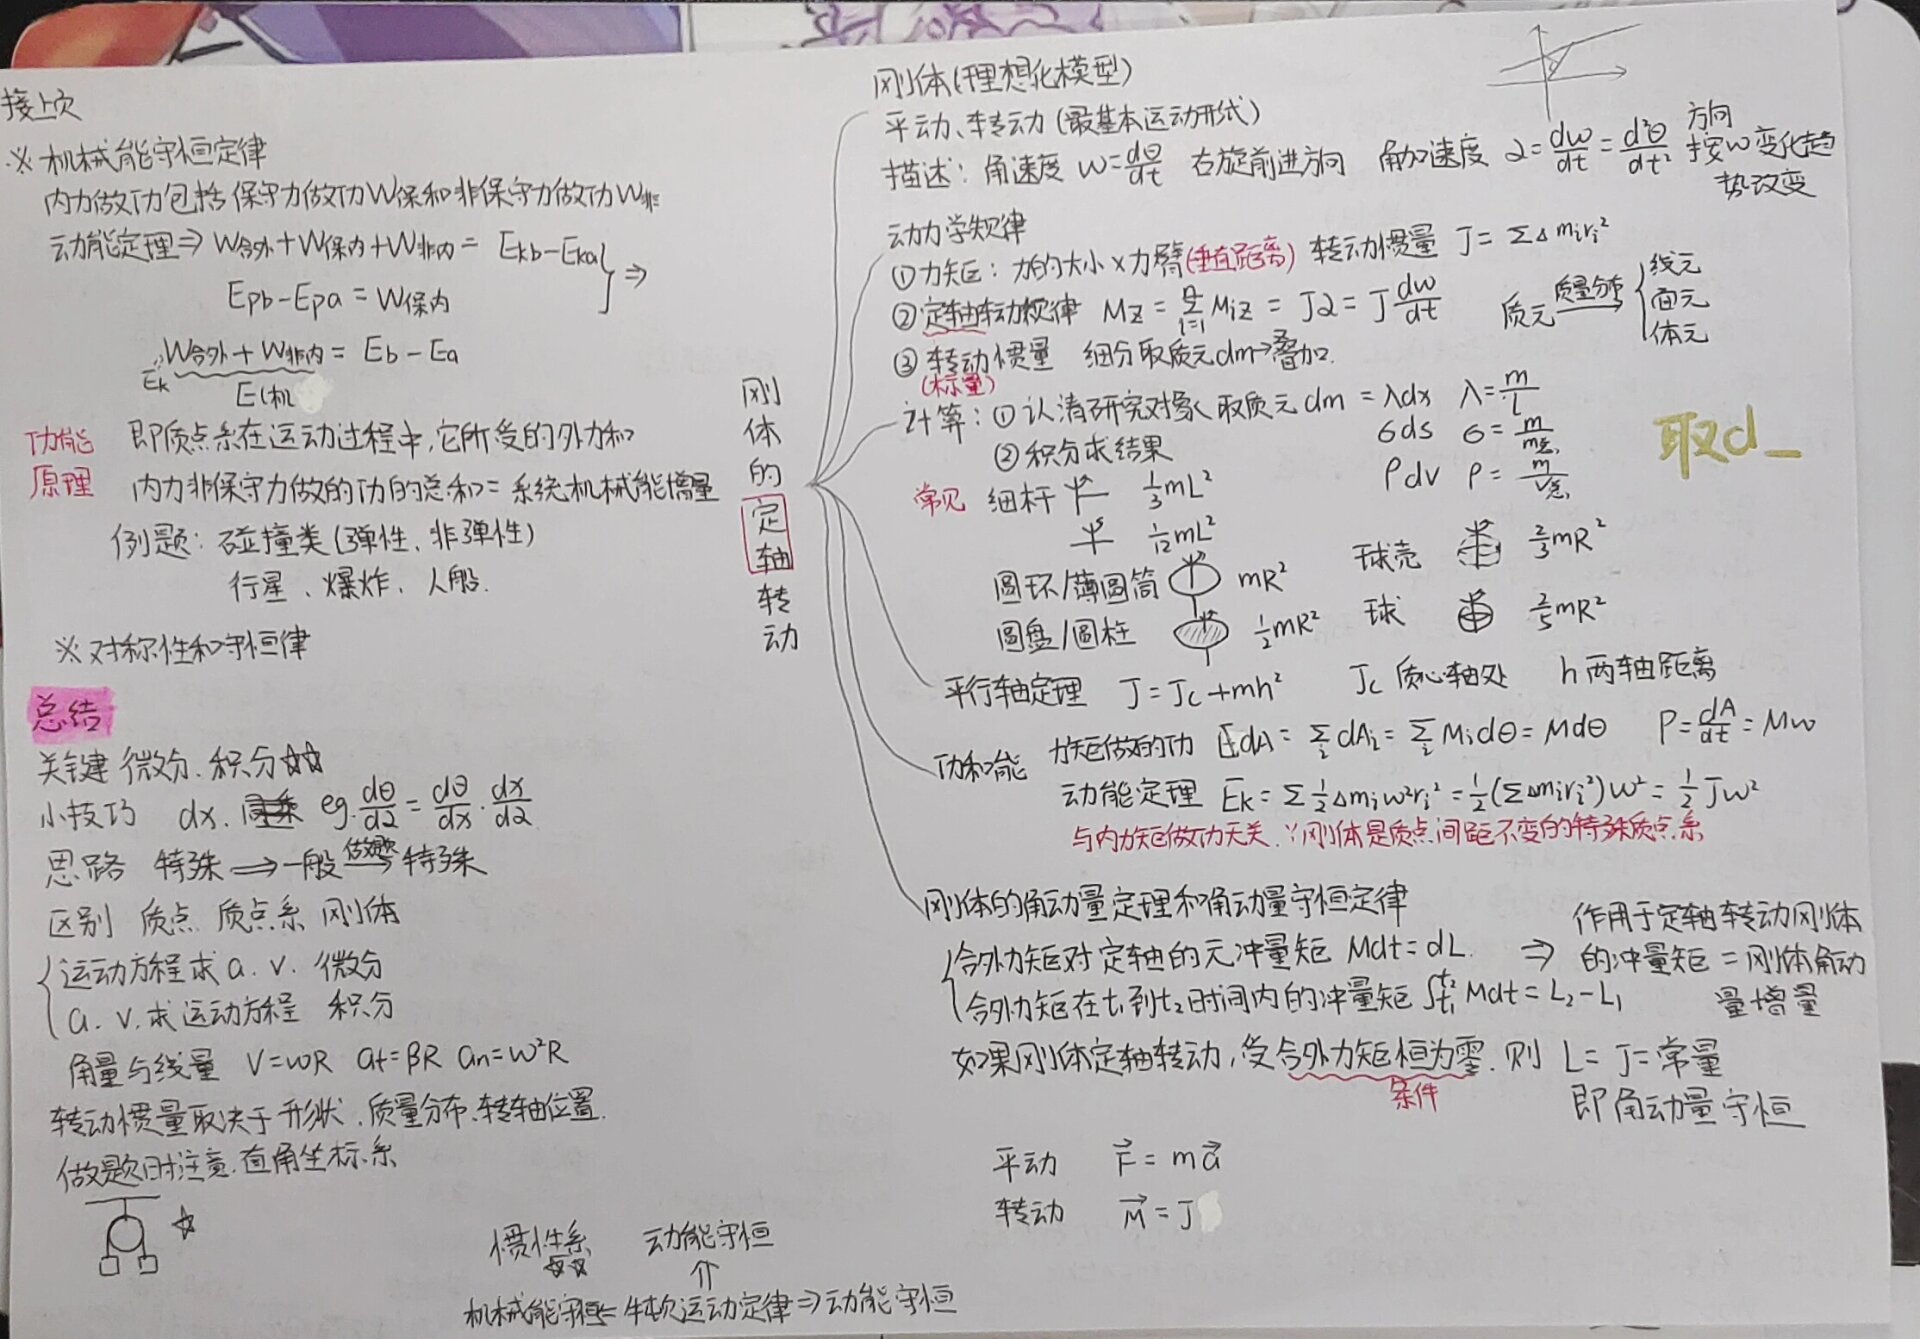 接上次
※机械能守恒定律
内力做功包括保守力做功W保和非保守力做功W非
动能定理⇒ W合外+W保内+W非内= Ekb-Eka
Epb-Epa=W保内 } ⇒
W合外+W非内= Eb-Ea
Ek
E(机
功能原理
即质点系在运动过程中,它所受的外力和
内力非保守力做的功的总和=系统机械能增量
例题: 碰撞类(弹性、非弹性)
行星、爆炸、人船.
※对称性和守恒律
总结
关键 微分、积分☆☆
小技巧 dx. eg. dθ/dα = dθ/dx · dx/dα
思路 特殊⇒一般→特殊
区别 质点 质点系 刚体
{运动方程求a.v. 微分
a.v.求运动方程 积分
角量与线量 V=ωR at=βR an=ω²R
转动惯量取决于形状、质量分布、转轴位置.
做题时注意.直角坐标系
☆
惯性系 动能守恒
☆☆ ⇑
机械能守恒= 牛顿运动定律⇒动能守恒
刚体的定轴转动
刚体(理想化模型)
平动、转动(最基本运动形式)
描述: 角速度 ω=dθ/dt 右旋前进方向 角加速度 α=dω/dt=d²θ/dt² 方向按ω变化趋势改变
动力学规律
①力矩: 力的大小×力臂(垂直距离) 转动惯量 J=ΣΔmiri²
②定轴转动规律 Mz=Σ(i=1→n)Miz=Jα=J dω/dt 质元 质量分布→ {线元 面元 体元
③转动惯量 细分取质元dm→叠加.
(标量)
计算: ①认清研究对象取质元dm =λdx λ=m/l
②积分求结果 σds σ=m/m总
ρdv ρ=m/V总
取d_
常见 细杆 1/3 mL²
1/12 mL²
圆环/薄圆筒 mR² 球壳 2/3 mR²
圆盘/圆柱 1/2 mR² 球 2/5 mR²
平行轴定理 J=Jc+mh² Jc 质心轴处 h两轴距离
功和能 力矩做的功 dA=Σi dAi=Σi Midθ=Mdθ P=dA/dt=Mω
动能定理 Ek=Σ1/2Δmiω²ri²=1/2(ΣΔmiri²)ω²=1/2Jω²
与内力矩做功无关.∵刚体是质点间距不变的特殊质点系
刚体的角动量定理和角动量守恒定律
{合外力矩对定轴的元冲量矩 Mdt=dL.
合外力矩在t₁到t₂时间内的冲量矩 ∫t₁t₂ Mdt=L₂-L₁
⇒ 作用于定轴转动刚体
的冲量矩=刚体角动
量增量
如果刚体定轴转动,受合外力矩恒为零.则 L= J=常量
条件
即角动量守恒
平动 F⃗=ma⃗
转动 M⃗=J